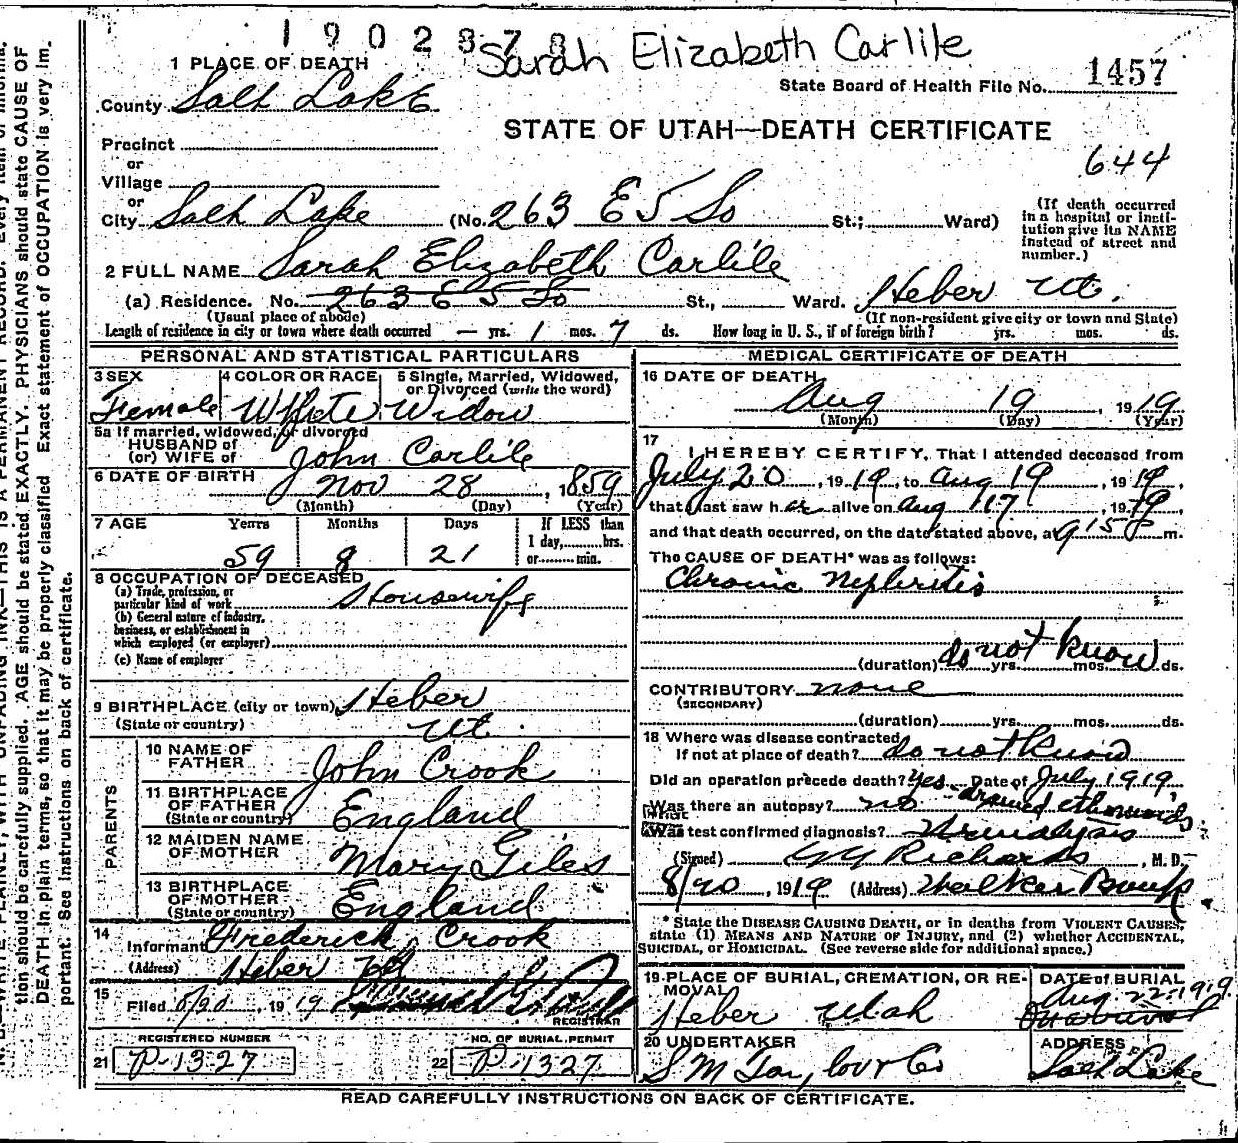 1902878
Sarah Elizabeth Carlile
1 PLACE OF DEATH
State Board of Health File No. 1457
County Salt Lake
STATE OF UTAH—DEATH CERTIFICATE
Precinct
644
or
Village
or
City Salt Lake (No. 263 E 5 So St.; Ward)
(If death occurred
in a hospital or insti-
tution give its NAME
instead of street and
number.)
2 FULL NAME Sarah Elizabeth Carlile
(a) Residence. No. 263 E 5 So St., Ward. Heber Ut.
(Usual place of abode) (If non-resident give city or town and State)
Length of residence in city or town where death occurred — yrs. 1 mos. 7 ds. How long in U. S., if of foreign birth? yrs. mos. ds.
PERSONAL AND STATISTICAL PARTICULARS
3 SEX 4 COLOR OR RACE 5 Single, Married, Widowed,
or Divorced (write the word)
Female White Widow
5a If married, widowed, or divorced
HUSBAND of
(or) WIFE of John Carlile
6 DATE OF BIRTH Nov 28, 1859
(Month) (Day) (Year)
7 AGE Years Months Days If LESS than
1 day,........hrs.
59 8 21 or........min.
8 OCCUPATION OF DECEASED
(a) Trade, profession, or
particular kind of work Housewife
(b) General nature of industry,
business, or establishment in
which employed (or employer)
(c) Name of employer
9 BIRTHPLACE (city or town) Heber
(State or country) Ut.
PARENTS
10 NAME OF
FATHER John Crook
11 BIRTHPLACE
OF FATHER
(State or country) England
12 MAIDEN NAME
OF MOTHER Mary Giles
13 BIRTHPLACE
OF MOTHER
(State or country) England
14
Informant Frederick Crook
(Address) Heber
15
Filed 8/20, 1919
REGISTRAR
REGISTERED NUMBER NO. OF BURIAL PERMIT
21 P-1327 22 P-1327
MEDICAL CERTIFICATE OF DEATH
16 DATE OF DEATH
Aug 19, 1919
(Month) (Day) (Year)
17
I HEREBY CERTIFY, That I attended deceased from
July 20, 1919, to Aug 19, 1919,
that I last saw her alive on Aug 17, 1919,
and that death occurred, on the date stated above, at 9 15 P m.
The CAUSE OF DEATH* was as follows:
Chronic Nephritis
(duration) do not know yrs. mos. ds.
CONTRIBUTORY none
(SECONDARY)
(duration) yrs. mos. ds.
18 Where was disease contracted
If not at place of death? do not know
Did an operation precede death? Yes Date of July 1919
Was there an autopsy? no drained
What test confirmed diagnosis? Urinalysis
(Signed) Richards, M. D.
8/20, 1919 (Address) Walker Bank
* State the DISEASE CAUSING DEATH, or in deaths from VIOLENT CAUSES,
state (1) MEANS AND NATURE OF INJURY, and (2) whether ACCIDENTAL,
SUICIDAL, OR HOMICIDAL. (See reverse side for additional space.)
19 PLACE OF BURIAL, CREMATION, OR RE-
MOVAL
Heber Utah
DATE of BURIAL
Aug 22 1919
20 UNDERTAKER ADDRESS
S M Taylor & Co Salt Lake
READ CAREFULLY INSTRUCTIONS ON BACK OF CERTIFICATE.
tion should be carefully supplied. AGE should be stated EXACTLY. PHYSICIANS should state CAUSE OF
DEATH in plain terms, so that it may be properly classified Exact statement of OCCUPATION is very im-
portant. See instructions on back of certificate.